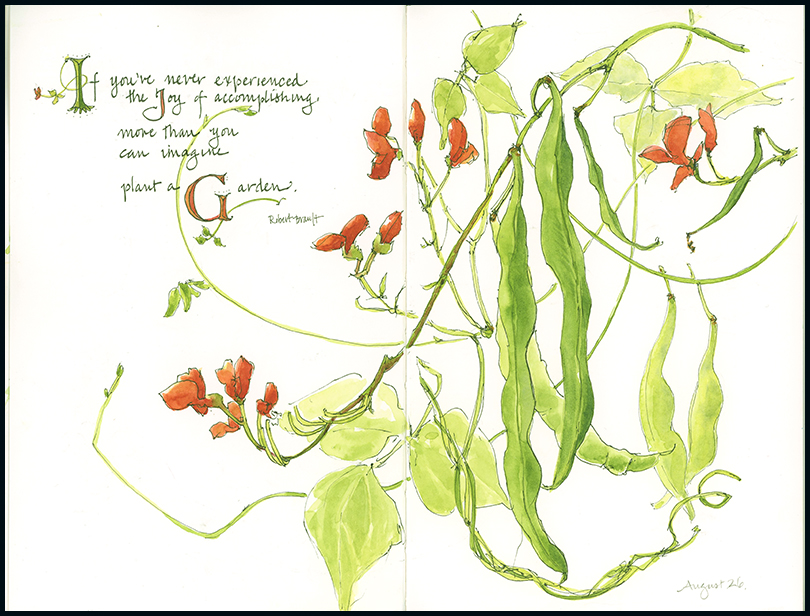 If you've never experienced
the Joy of accomplishing,
more than you
can imagine
plant a Garden.
Robert Brault
August 26.